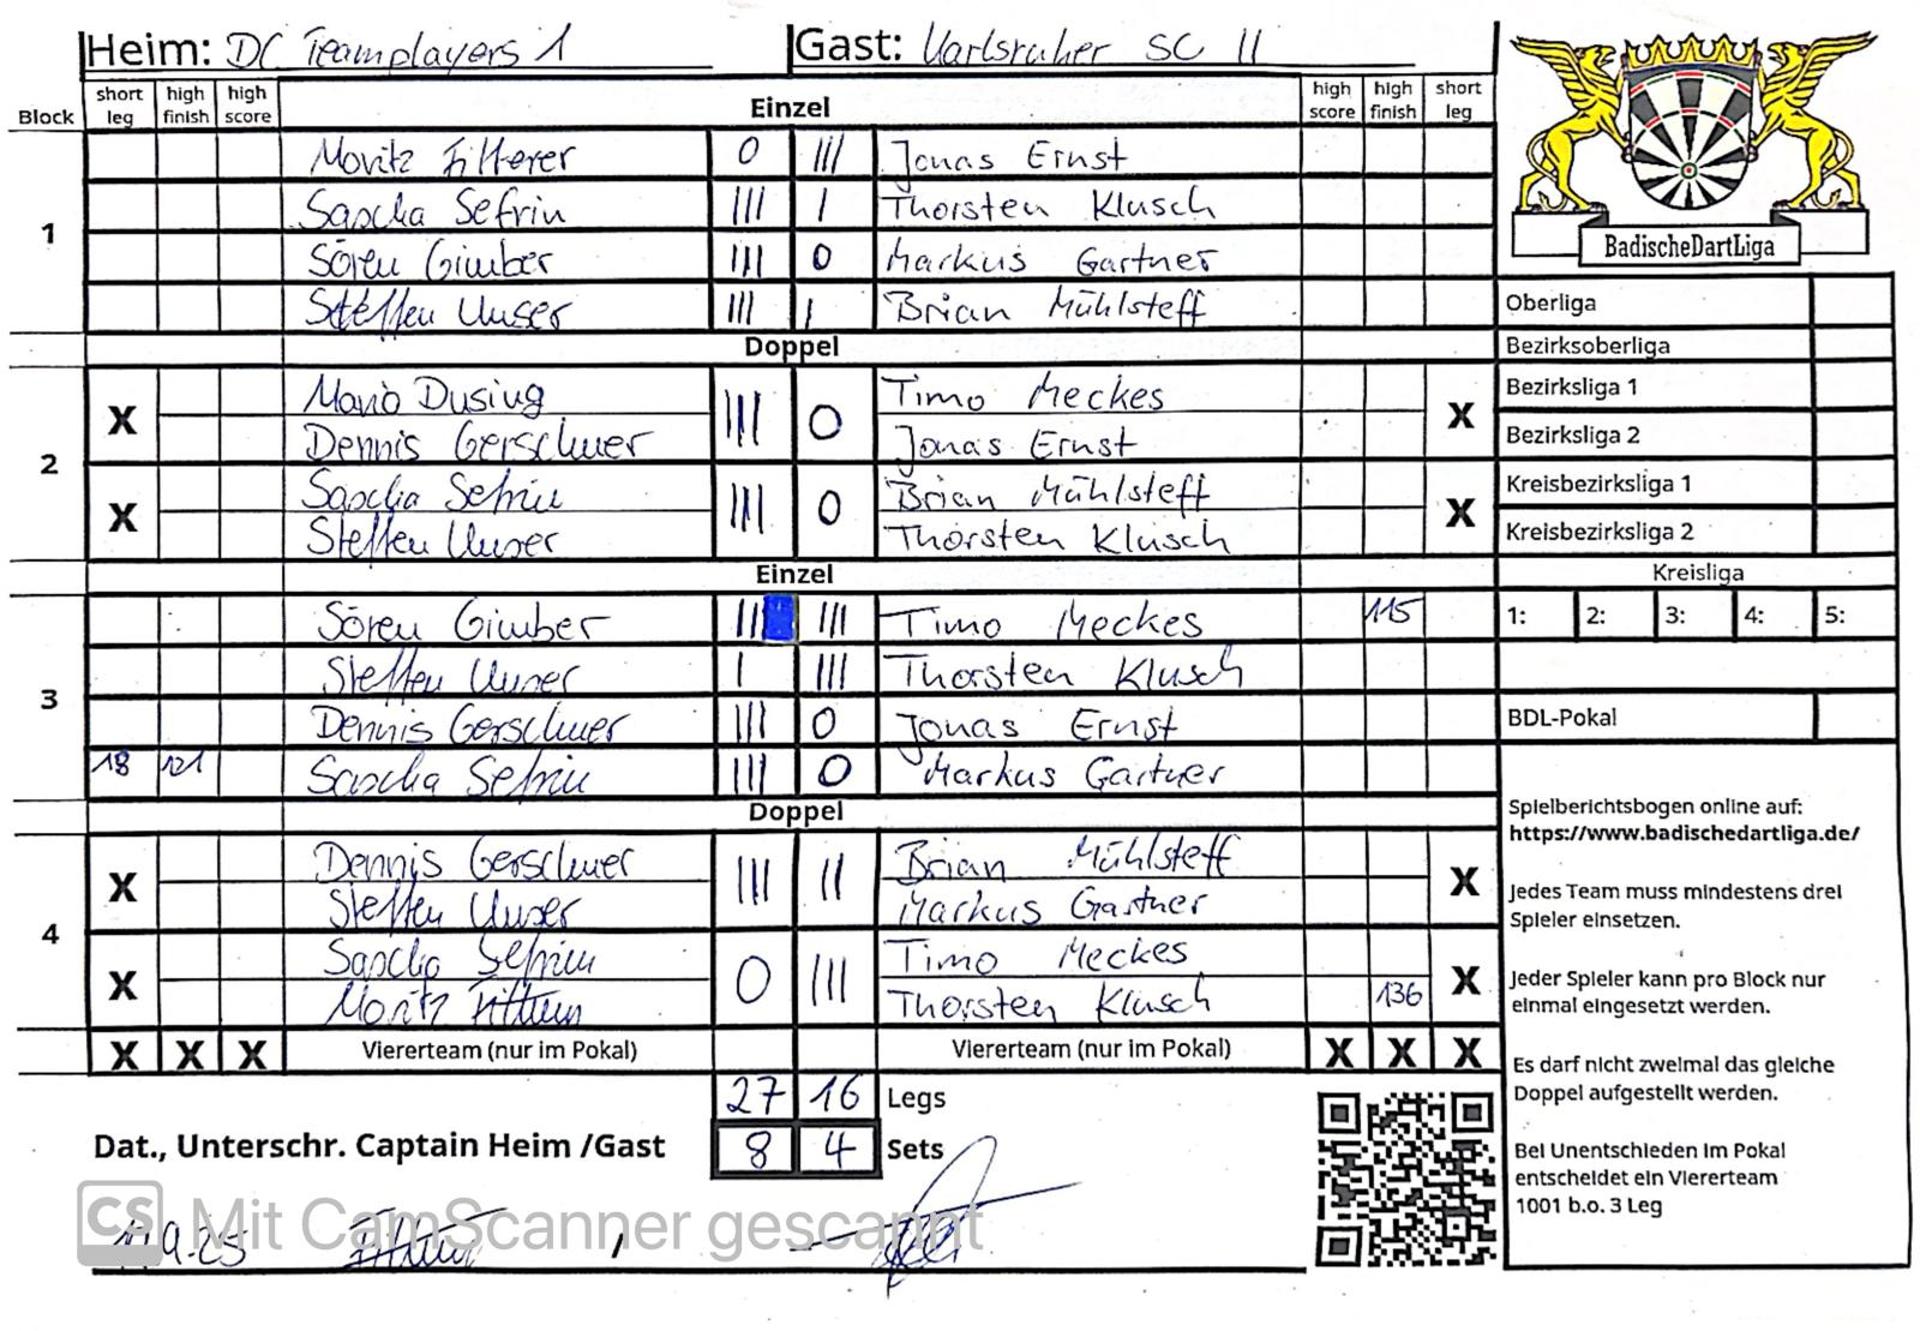 Heim: DC Teamplayers 1 Gast: Karlsruher SC II
Block short leg high finish high score Einzel high score high finish short leg
1
Moritz Fitterer 0 III Jonas Ernst
Sascha Sefrin III I Thorsten Klusch
Sören Gimber III 0 Markus Gartner
Steffen Unser III I Brian Mühlsteff
Doppel
2
X Mario Dusing III 0 Timo Meckes X
Dennis Gerschwer Jonas Ernst
X Sascha Sefrin III 0 Brian Mühlsteff X
Steffen Unser Thorsten Klusch
Einzel
3
Sören Gimber II III Timo Meckes 115
Steffen Unser I III Thorsten Klusch
Dennis Gerschwer III 0 Jonas Ernst
18 121 Sascha Sefrin III 0 Markus Gartner
Doppel
4
X Dennis Gerschwer III II Brian Mühlsteff X
Steffen Unser Markus Gartner
X Sascha Sefrin 0 III Timo Meckes X
Moritz Fitterer Thorsten Klusch 136
X X X Viererteam (nur im Pokal) Viererteam (nur im Pokal) X X X
27 16 Legs
8 4 Sets
Dat., Unterschr. Captain Heim /Gast
CS Mit CamScanner gescannt
BadischeDartLiga
Oberliga
Bezirksoberliga
Bezirksliga 1
Bezirksliga 2
Kreisbezirksliga 1
Kreisbezirksliga 2
Kreisliga
1: 2: 3: 4: 5:
BDL-Pokal
Spielberichtsbogen online auf:
https://www.badischedartliga.de/
Jedes Team muss mindestens drei
Spieler einsetzen.
Jeder Spieler kann pro Block nur
einmal eingesetzt werden.
Es darf nicht zweimal das gleiche
Doppel aufgestellt werden.
Bei Unentschieden im Pokal
entscheidet ein Viererteam
1001 b.o. 3 Leg